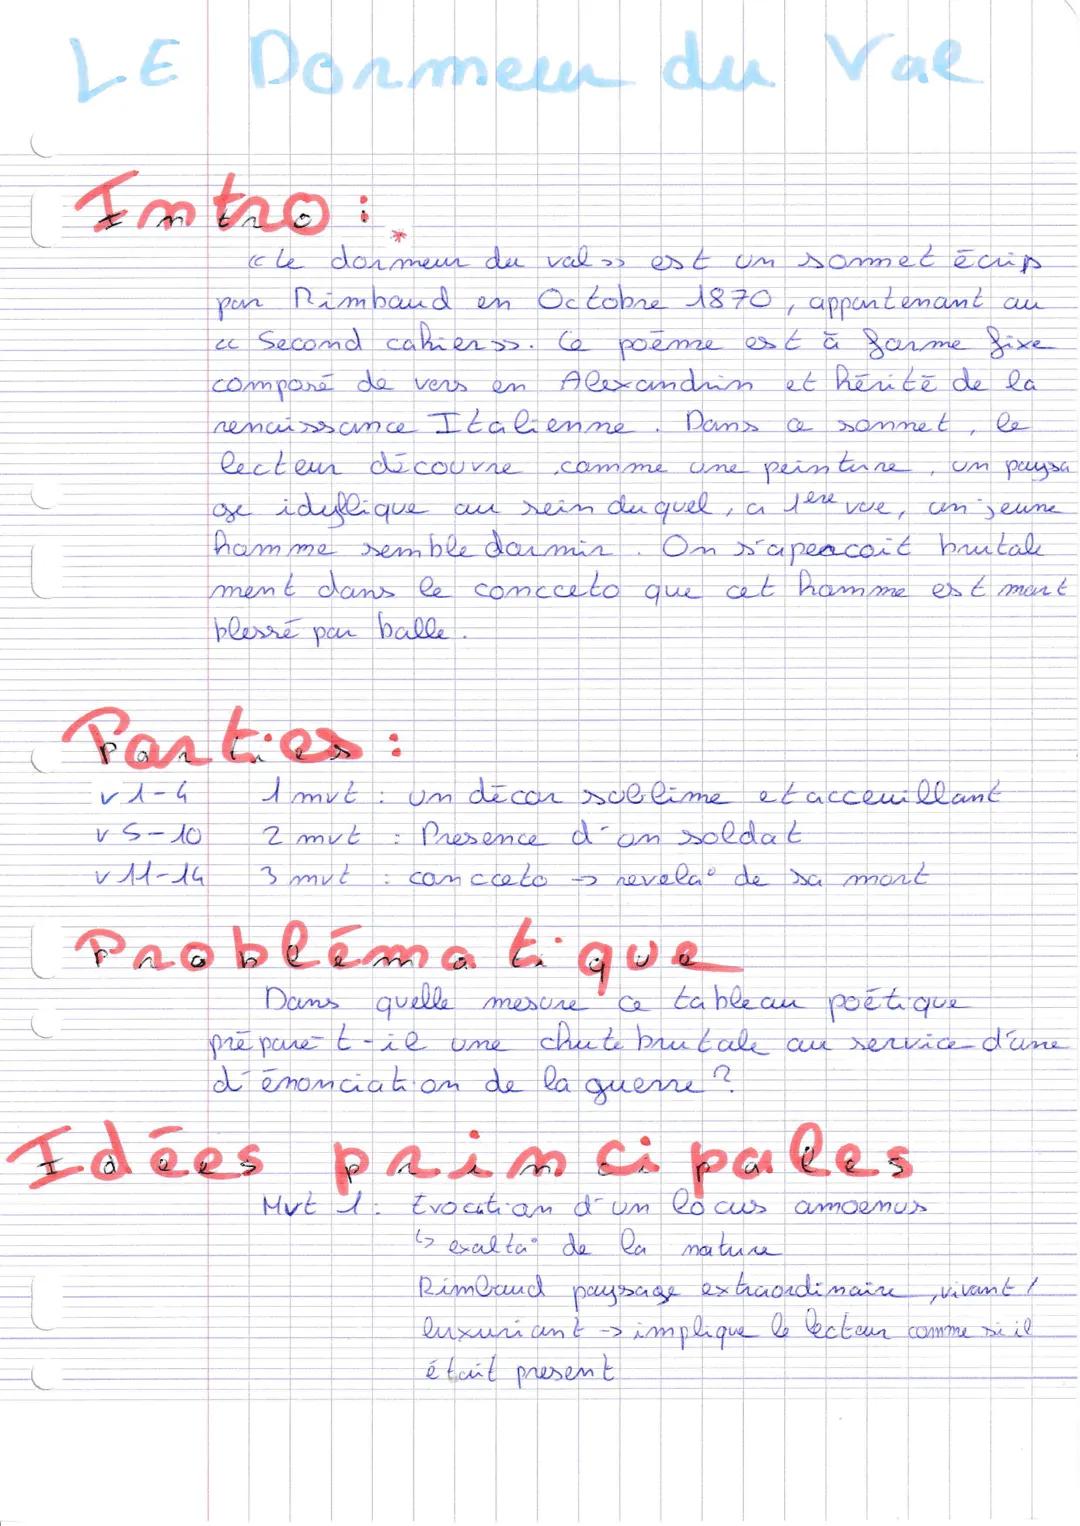 LE Dormeur du Val
Intro :
*
« Le dormeur du val » est un sonnet écrip
par Rimbaud en Octobre 1870, appartenant au
« Second cahier ». Ce poème est à forme fixe
composé de vers en Alexandrin et hérité de la
renaissance Italienne. Dans ce sonnet, le
lecteur découvre, comme une peinture, un paysa
ge idyllique au sein duquel, a 1ère vue, un jeune
homme semble dormir. On s'aperacoit brutale
ment dans le concceto que cet homme est mort
blessé par balle.
Parties :
v 1-4 1 mvt : un décor sublime et acceuillant
v 5-10 2 mvt : Presence d'un soldat
v 11-14 3 mvt : concceto → revela° de sa mort
Problématique
Dans quelle mesure ce tableau poétique
prépare-t-il une chute brutale au service d'une
d'énonciation de la guerre ?
Idées principales
Mvt 1 : Evocation d'un locus amoenus
↳ exalta° de la nature
Rimbaud paysage extraordinaire, vivant /
luxuriant → implique le lecteur comme si il
était present